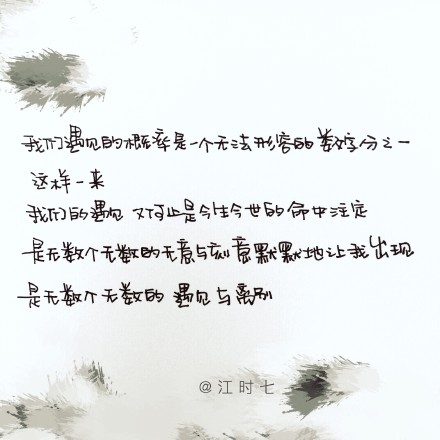 我们遇见的概率是一个无法形容的数字分之一
这样一来
我们的遇见 又何止是今生今世的命中注定
是无数个无数的无意与刻意默默地让我出现
是无数个无数的 遇见与离别
@江时七